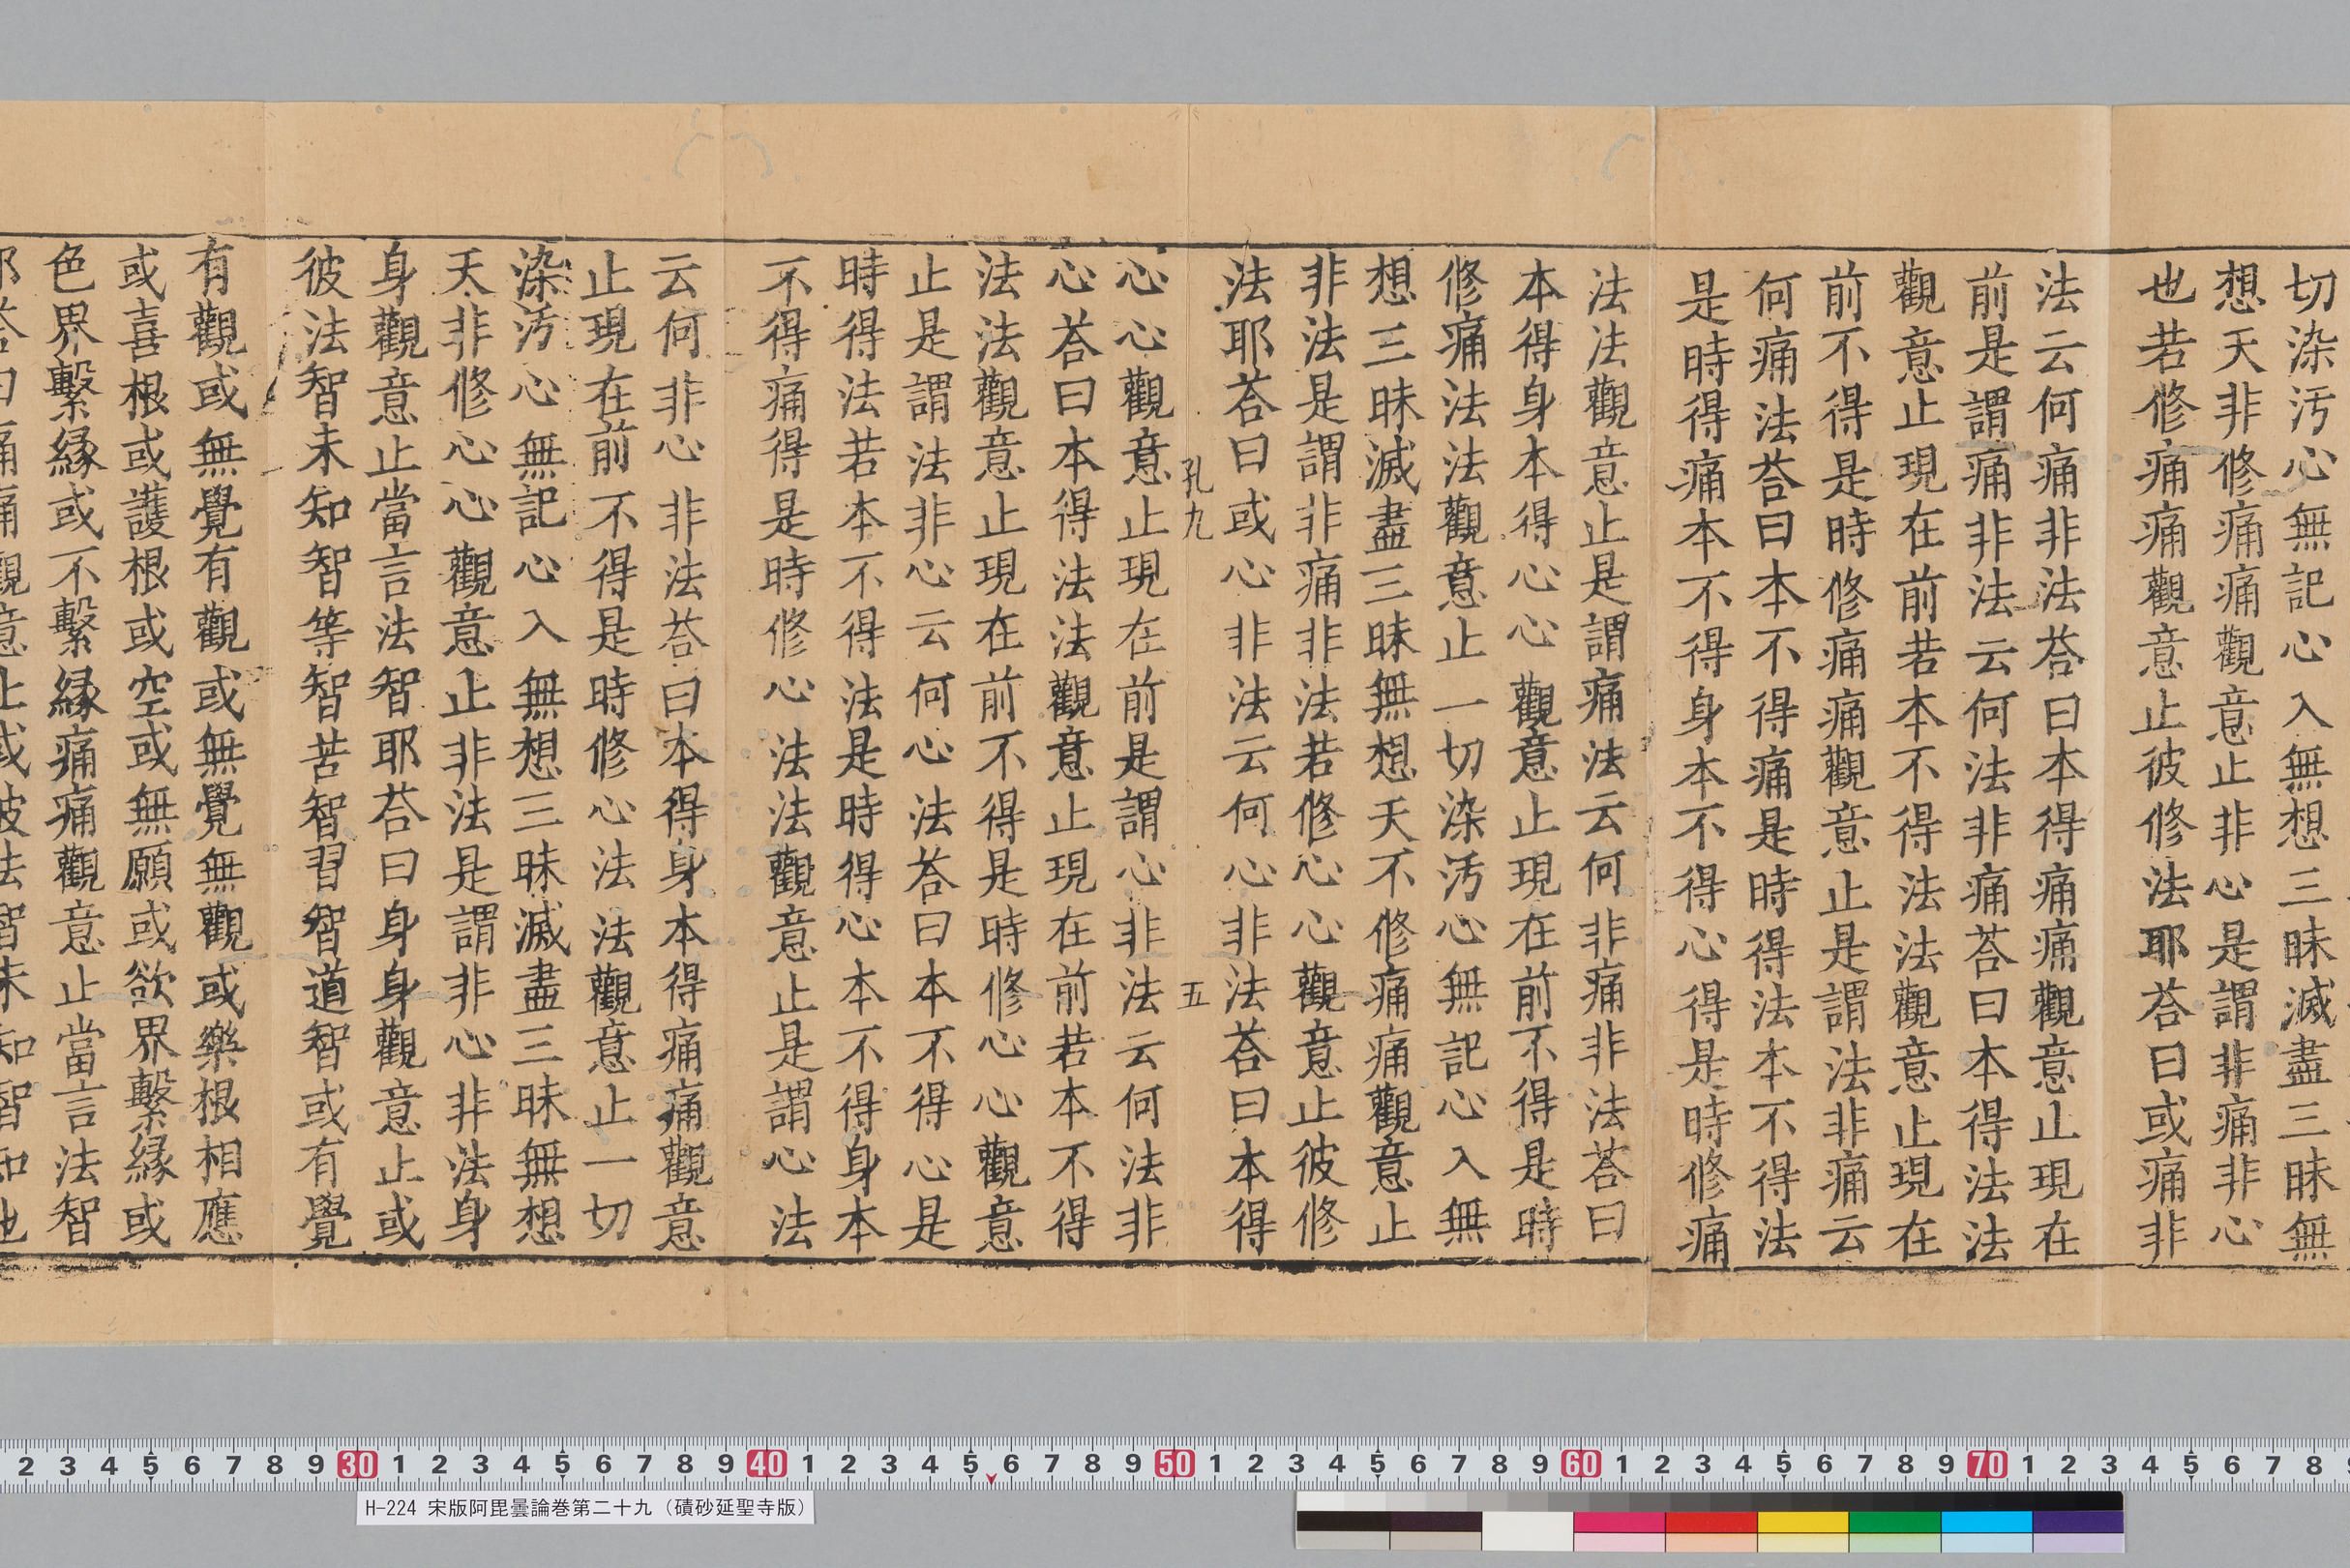 切染汚心無記心入無想三昧滅盡三昧無
想天非修痛痛觀意止非心是謂非痛非心
也若修痛痛觀意止彼修法耶荅曰或痛非
法云何痛非法荅曰本得痛痛觀意止現在
前是謂痛非法云何法非痛荅曰本得法法
觀意止現在前若本不得法觀意止現在
前不得是時修痛痛觀意止是謂法非痛云
何痛法荅曰本不得痛是時得法本不得法
是時得痛本不得身本不得心得是時修痛
法法觀意止是謂痛法云何非痛非法荅曰
本得身本得心心觀意止現在前不得是時
修痛法法觀意止一切染汚心無記心入無
想三昧滅盡三昧無想天不修痛痛觀意止
非法是謂非痛非法若修心心觀意止彼修
法耶荅曰或心非法云何心非法荅曰本得
孔九 五
心心觀意止現在前是謂心非法云何法非
心荅曰本得法法觀意止現在前若本不得
法法觀意止現在前不得是時修心心觀意
止是謂法非心云何心法荅曰本不得心是
時得法若本不得法是時得心本不得身本
不得痛得是時修心法法觀意止是謂心法
云何非心非法荅曰本得身本得痛痛觀意
止現在前不得是時修心法法觀意止一切
染汚心無記心入無想三昧滅盡三昧無想
天非修心心觀意止非法是謂非心非法身
身觀意止當言法智耶荅曰身身觀意止或
彼法智未知智等智苦智習智道智或有覺
有觀或無覺有觀或無覺無觀或樂根相應
或喜根或護根或空或無願或欲界繫緣或
色界繫緣或不繫緣痛痛觀意止當言法智
耶荅曰痛痛觀意止或彼法智未知智知他
H-224 宋版阿毘曇論巻第二十九（磧砂延聖寺版）